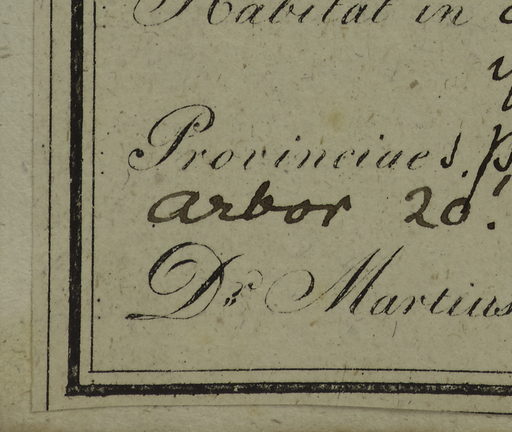 Habitat in
Provinciae S. P
arbor 20'.
Dr. Martius